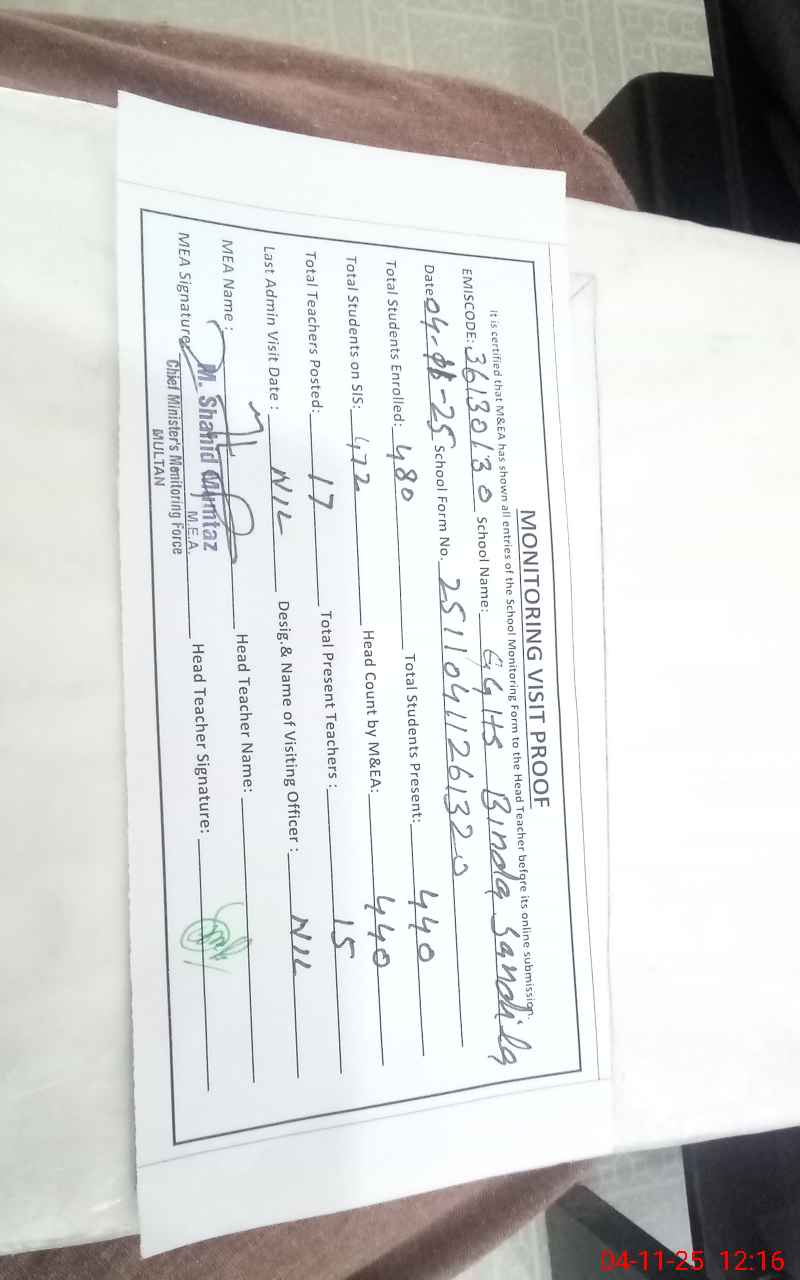 MONITORING VISIT PROOF
It is certified that M&EA has shown all entries of the School Monitoring Form to the Head Teacher before its online submission.
EMISCODE: 36130130 School Name: GGHS Binda Sandila
Date 04-11-25 School Form No. 25110411261320
Total Students Enrolled: 480 Total Students Present: 440
Total Students on SIS: 472 Head Count by M&EA: 440
Total Teachers Posted: 17 Total Present Teachers : 15
Last Admin Visit Date : NIL Desig.& Name of Visiting Officer : NIL
MEA Name : M. Shahid Mumtaz Head Teacher Name:
M.E.A.
MEA Signature: Chief Minister's Monitoring Force Head Teacher Signature:
MULTAN
04-11-25 12:16